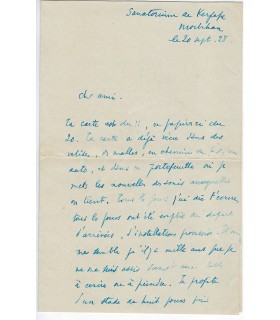 Sanatorium de Kerpape
Morbihan
le 20 sept. 28.
cher ami.
Ta carte est du 11, ce papier-ci du
20. Ta carte a déjà vécu dans des
valises, des malles, en chemin de fer, en
auto, et dans un portefeuille où je
mets les nouvelles des amis auxquelles
on tient. Tous les jours j'ai dû t'écrire
tous les jours ont été emplis de départ
d'arrivées, d'installations
me semble qu'il y a mille ans que je
ne me suis assis devant une table
à écrire ou à peindre. Je profite
d'un stade de huit jours